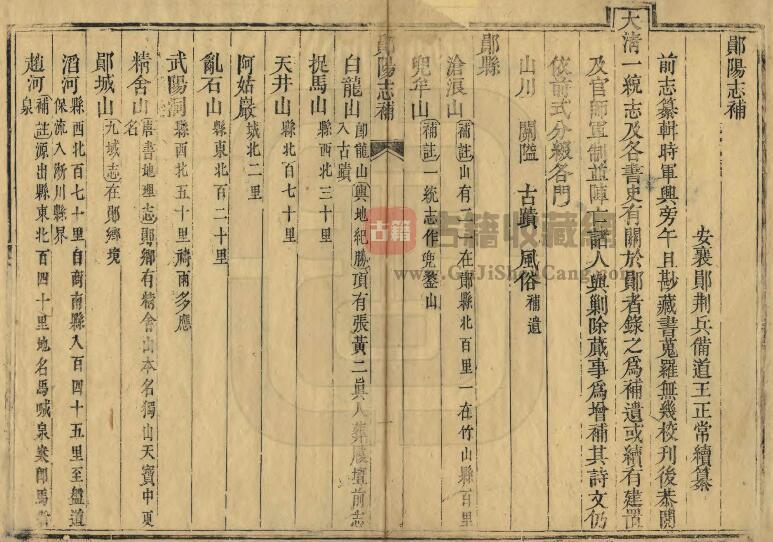 鄖陽志補
安襄鄖荆兵備道王正常續纂
前志纂輯時軍興旁午且尠藏書蒐羅無幾校刊後恭閱
大淸一統志及各書史有關於鄖者錄之爲補遺或續有建置
及官師置制並陣亡諸人與剿除蕆事爲增補其詩文仍
依前式分綴各門
山川 關隘 古蹟 風俗 補遺
鄖縣
滄浪山 補註山有二一在鄖縣北百里一在竹山縣百里
兜牟山 補註一統志作兜鍪山
鄖陽志補
白龍山 卽龍山輿地紀勝頂有張黃二眞人 壇前志
入古蹟
捉馬山 縣西北三十里
天井山 縣北百七十里
阿姑巖 城北二里
亂石山 縣東北百二十里
武陽洞 縣西北五十里禱雨多應
精舍山 唐書地理志鄖鄉有精舍山本名獨山天寶中更
名
鄖城山 九域志在鄖鄉境
滔河 縣西北百七十里自商南縣入百四十五里至盤道
保流入淅川縣界
趙河 補註源出縣東北百四十里地名馬喊泉案卽馬
泉
古籍
古籍收藏網
www.GuJiShouCang.com